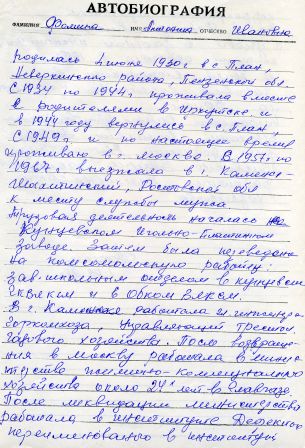 АВТОБИОГРАФИЯ
ФАМИЛИЯ Фомина ИМЯ Антонина ОТЧЕСТВО Ивановна
родилась 4 июня 1930г в с. План,
Неверкинского района, Пензенской обл.
С 1934 по 1944г. проживала вместе
с родителями в Иркутске и
в 1944 году вернулись в с. План,
С 1949г. и по настоящее время
проживаю в г. Москве. В 1957г. по
1967г выезжала в г. Каменск-
Шахтинский, Ростовской обл
к месту службы мужа.
Трудовая деятельность началась на
Кунцевском Игольно-Платинном
заводе. Затем была переведена
на комсомольскую работу:
зав. школьным отделом в Кунцевском
ГК ВЛКСМ и в Обком ВЛКСМ.
В г. Каменске работала
Горкомхоза, Управляющей трестом
хозяйства. После возвраще-
ния в Москву работала в Минис-
терстве жилищно-коммунального
хозяйства около 24 лет в
После ликвидации министерства
работала в институте
переименованного в институт